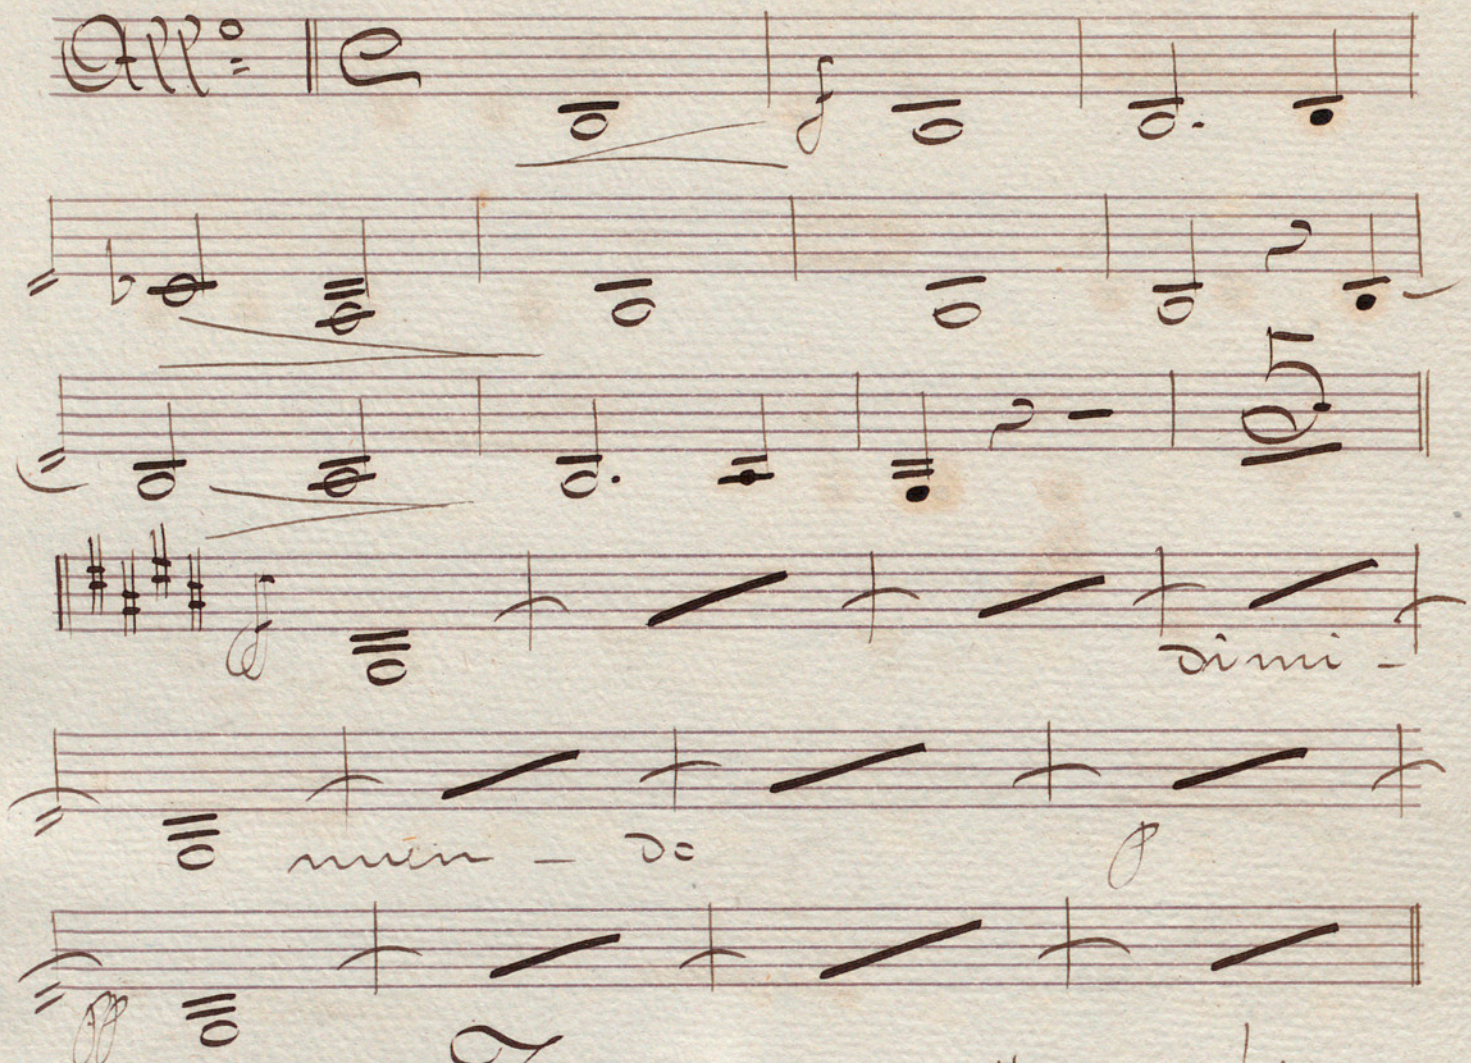 Allo
f
65
ff
dimi -
nuen - do
p
pp